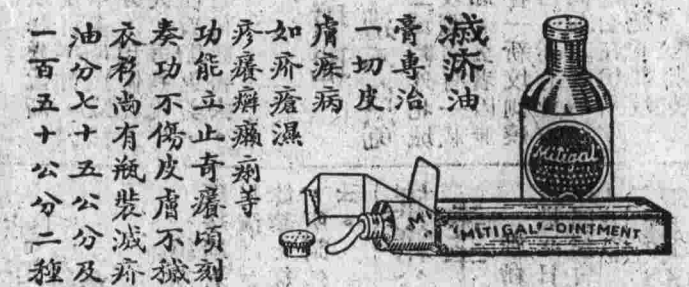 滅疥油
膏專治
一切皮
膚疾病
如疥瘡濕
疹癢癬癩痢等
功能立止奇癢頃刻
奏功不傷皮膚不穢
衣衫尚有瓶裝滅疥
油分七十五公分及
一百五十公分二種
Mitigal
"MITIGAL"-OINTMENT